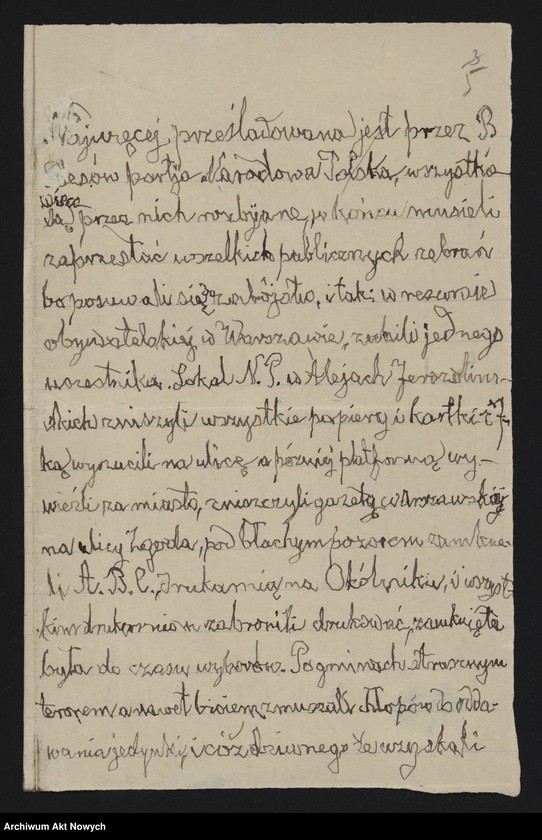 3/5
Najwięcej prześladowana jest przez B
Besów partja Narodowa Polska, wszystkie
wiece
są przez nich rozbijane, w końcu musieli
zaprzestać wszelkich publicznych zebrań
bo posuwali się do zabójstw, i tak: w resursie
obywatelskiej, w Warszawie, zabili jednego
uczestnika. Lokal N. P. w Alejach Jerozolims-
kich zniszyli wszystkie papiery i kartki z 1-
ką wyrzucili na ulicę a później platformą wy-
wieźli za miasto, zniszczyli gazetę warszawską
na ulicy Zgoda, pod błachym pozorem zamknę-
li A. B. C., drukarnią na Okólniku, i wszyst-
kim drukarniom zabronili drukować, zamknięta
była do czasu wyborów. Po gminach strasznym
terorem a nawet biciem zmuszali chłopów do odda-
wania jedynki, i cóż dziwnego że uzyskali
Archiwum Akt Nowych